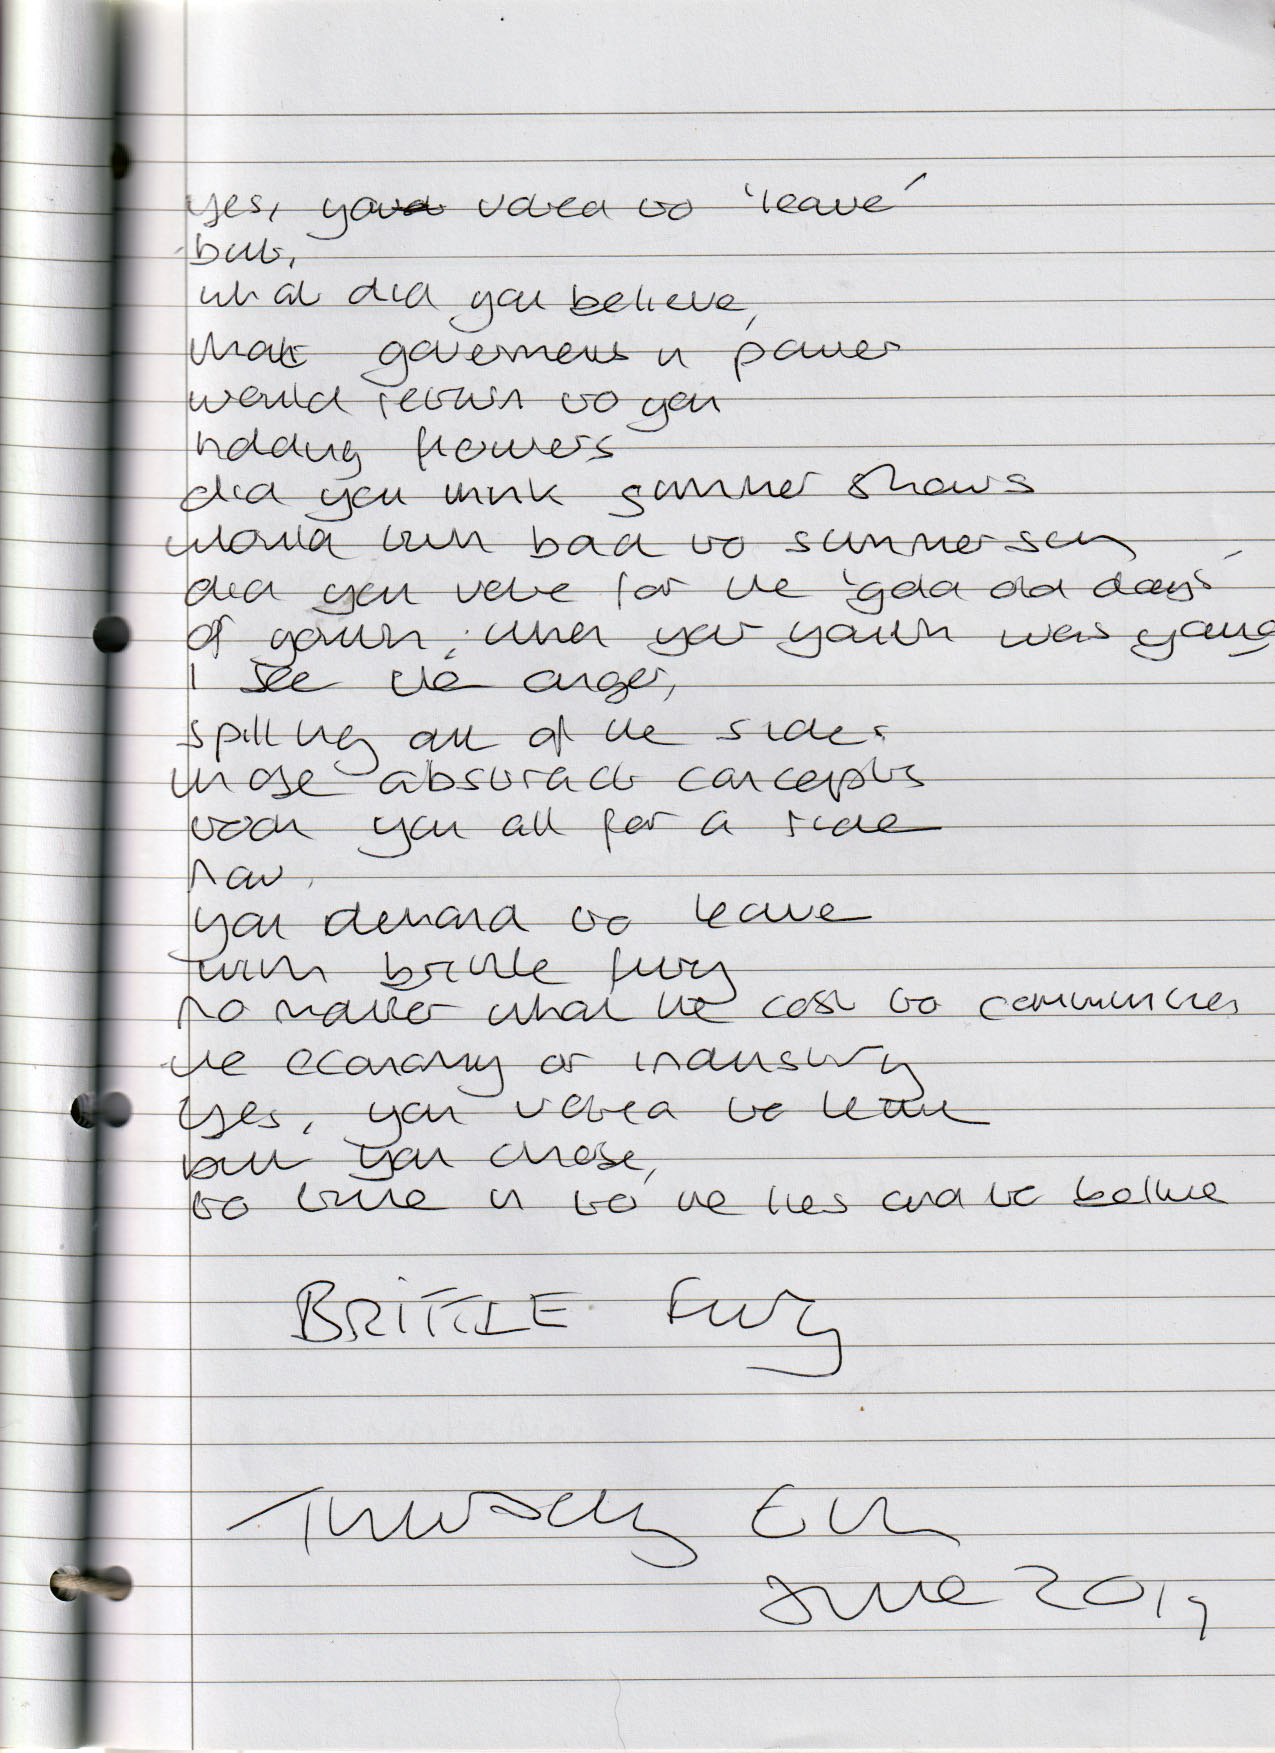 yes, you voted to 'leave'
but,
what did you believe,
that governments in power
would return to you
holding flowers
did you think summer shows
would turn back to summer sun
did you vote for the 'good old days'
of youth, when your youth was young
I see the anger,
spilling out of the sides
those abstract concepts
took you all for a ride
now,
you demand to leave
with brittle fury
no matter what the cost to communities
the economy or industry
yes, you voted to leave
but you chose,
to tune in to the lies and to believe
BRITTLE Fury
Thursday
June 2019